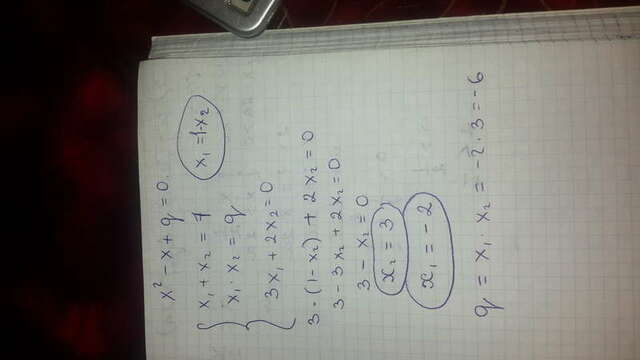 x² - x + q = 0
x₁ + x₂ = 1 x₁ = 1-x₂
x₁ · x₂ = q
3x₁ + 2x₂ = 0
3 · (1-x₂) + 2x₂ = 0
3 - 3x₂ + 2x₂ = 0
3 - x₂ = 0
x₂ = 3
x₁ = -2
q = x₁ · x₂ = -2 · 3 = -6